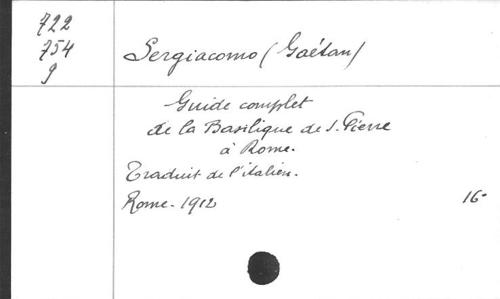 722
754
9
Sergiacomo (Gaétan)
Guide complet
de la Basilique de S. Pierre
à Rome.
Traduit de l'italien.
Rome - 1912
16-